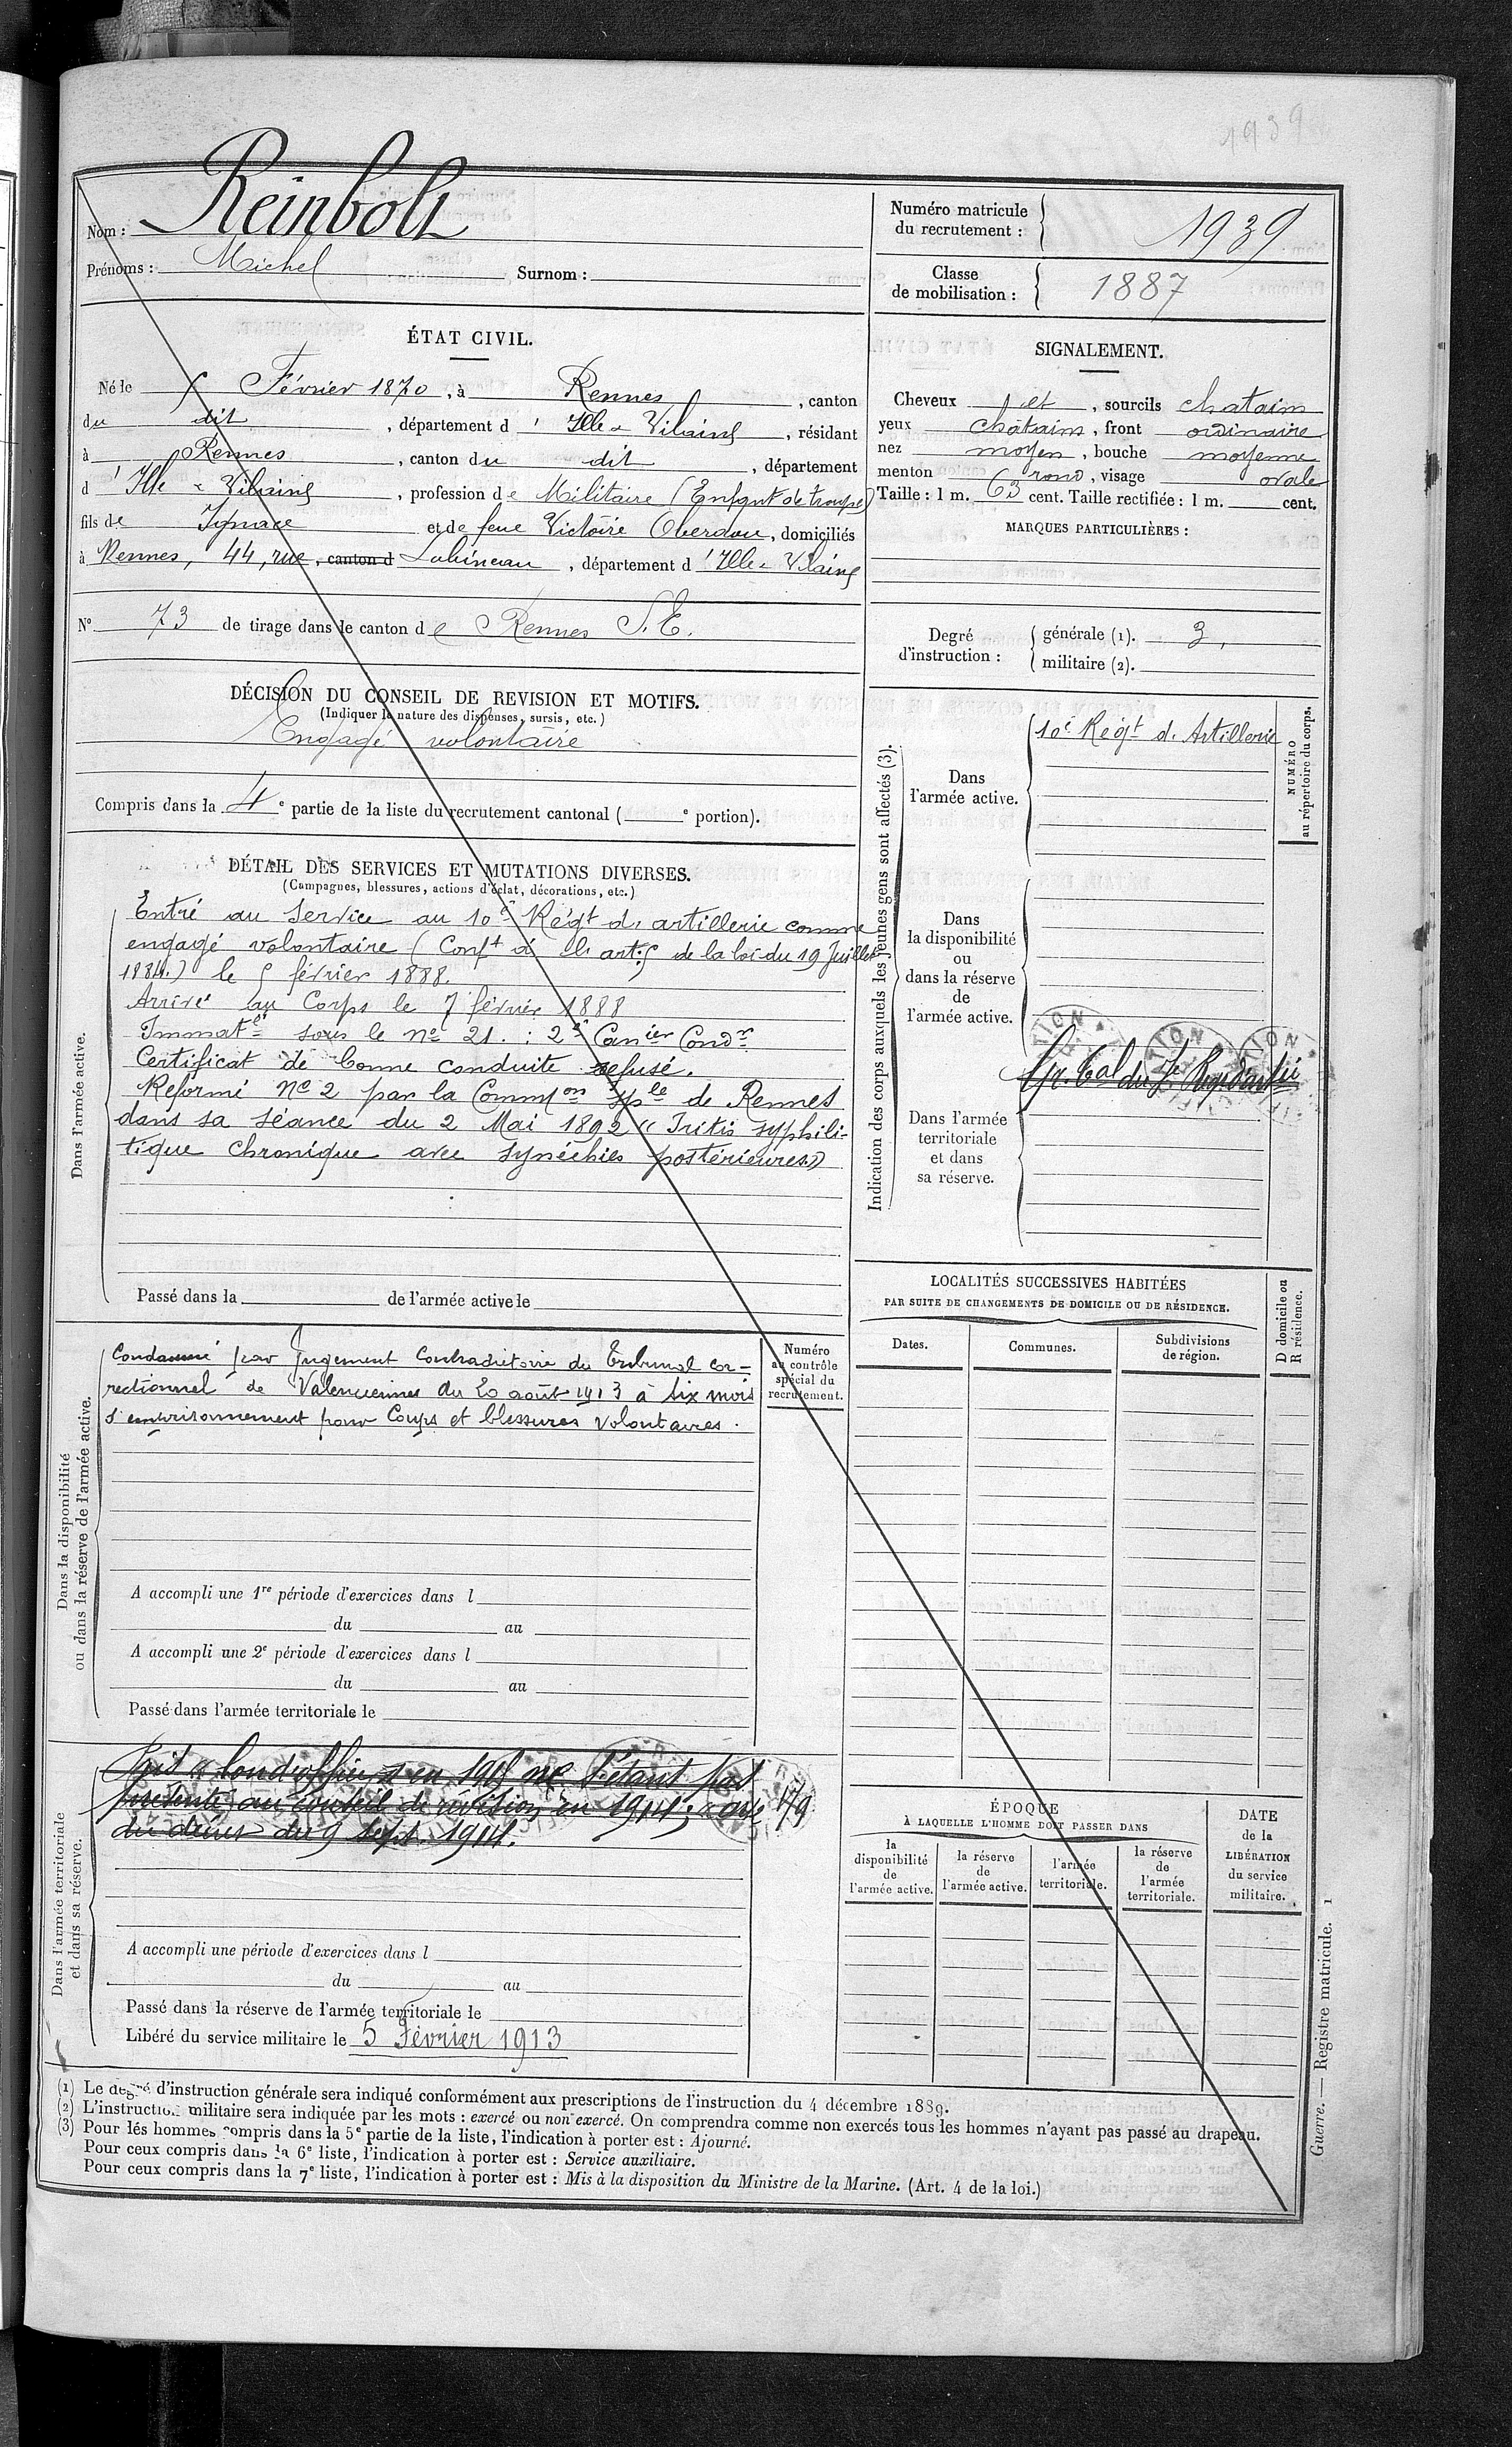 1939
Nom : Reinbolt
Prénoms : Michel Surnom :
Numéro matricule du recrutement : 1939
Classe de mobilisation : 1887
ÉTAT CIVIL.
Né le 5 Février 1870, à Rennes, canton
du dit, département d'Ille & Vilaine, résidant
à Rennes, canton du dit, département
d'Ille & Vilaine, profession de Militaire (Enfant de troupe)
fils de Ignace et de feue Victoire Oberdou, domiciliés
à Rennes, 44, rue, canton d Lobineau, département d'Ille & Vilaine
N° 73 de tirage dans le canton de Rennes S.E.
SIGNALEMENT.
Cheveux et, sourcils chatains
yeux châtains, front ordinaire
nez moyen, bouche moyenne
menton rond, visage ovale
Taille : 1 m. 63 cent. Taille rectifiée : 1 m. cent.
MARQUES PARTICULIÈRES :
Degré d'instruction : générale (1). 3.
militaire (2).
DÉCISION DU CONSEIL DE REVISION ET MOTIFS.
(Indiquer la nature des dispenses, sursis, etc.)
Engagé volontaire
Compris dans la 4e partie de la liste du recrutement cantonal ( e portion).
DÉTAIL DES SERVICES ET MUTATIONS DIVERSES.
(Campagnes, blessures, actions d'éclat, décorations, etc.)
Dans l'armée active.
Entré au Service au 10e Régt d'artillerie comme
engagé volontaire (Conft à l'art: 5 de la loi du 19 Juillet
1884.) le 5 février 1888.
Arrivé au Corps le 7 février 1888
Immaté sous le no 21. : 2e Canier Condr
Certificat de bonne conduite refusé.
Réformé No 2 par la Common Sple de Rennes
dans sa séance du 2 Mai 1892 « Iritis syphili-
tique chronique avec synéchies postérieures »
Passé dans la de l'armée active le
Indication des corps auxquels les jeunes gens sont affectés (3).
NUMÉRO au répertoire du corps.
Dans l'armée active.
10e Régt d'Artillerie
Dans la disponibilité ou dans la réserve de l'armée active.
Dans l'armée territoriale et dans sa réserve.
Dans la disponibilité ou dans la réserve de l'armée active.
Condamné par Jugement Contradictoire du Tribunal cor-
rectionnel de Valenciennes du 20 août 1913 à six mois
d'emprisonnement pour Coups et blessures volontaires.
Numéro au contrôle spécial du recrutement.
A accompli une 1re période d'exercices dans l
du au
A accompli une 2e période d'exercices dans l
du au
Passé dans l'armée territoriale le
LOCALITÉS SUCCESSIVES HABITÉES
PAR SUITE DE CHANGEMENTS DE DOMICILE OU DE RÉSIDENCE.
Dates. Communes. Subdivisions de région. D domicile ou R résidence.
Dans l'armée territoriale et dans sa réserve.
en 1915 ne s'étant pas
présenté au conseil de révision en 1914;
du décret du 9 Sept. 1914.
A accompli une période d'exercices dans l
du au
Passé dans la réserve de l'armée territoriale le
Libéré du service militaire le 5 Février 1913
ÉPOQUE
À LAQUELLE L'HOMME DOIT PASSER DANS
la disponibilité de l'armée active.
la réserve de l'armée active.
l'armée territoriale.
la réserve de l'armée territoriale.
DATE de la LIBÉRATION du service militaire.
(1) Le degré d'instruction générale sera indiqué conformément aux prescriptions de l'instruction du 4 décembre 1889.
(2) L'instruction militaire sera indiquée par les mots : exercé ou non exercé. On comprendra comme non exercés tous les hommes n'ayant pas passé au drapeau.
(3) Pour les hommes compris dans la 5e partie de la liste, l'indication à porter est : Ajourné.
Pour ceux compris dans la 6e liste, l'indication à porter est : Service auxiliaire.
Pour ceux compris dans la 7e liste, l'indication à porter est : Mis à la disposition du Ministre de la Marine. (Art. 4 de la loi.)
Guerre. — Registre matricule. 1